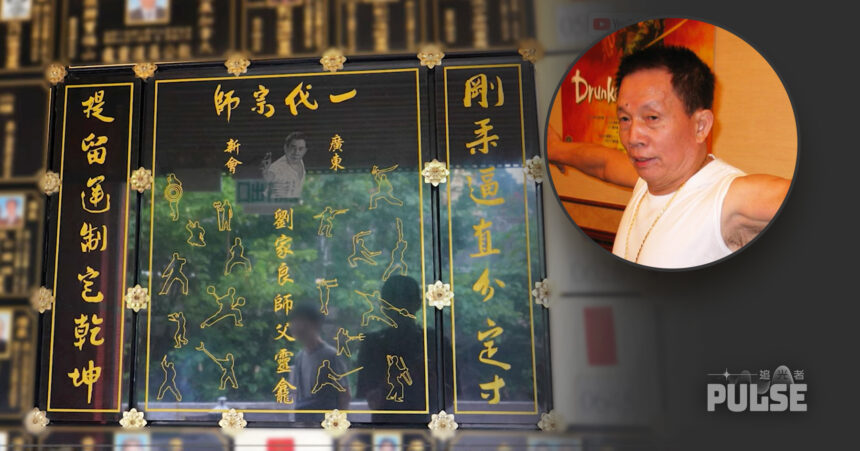 剛柔逼直分定寸
一代宗師
廣東
新會
劉家良師父靈龕
提留運制定乾坤
Drunk
追光者
PULSE